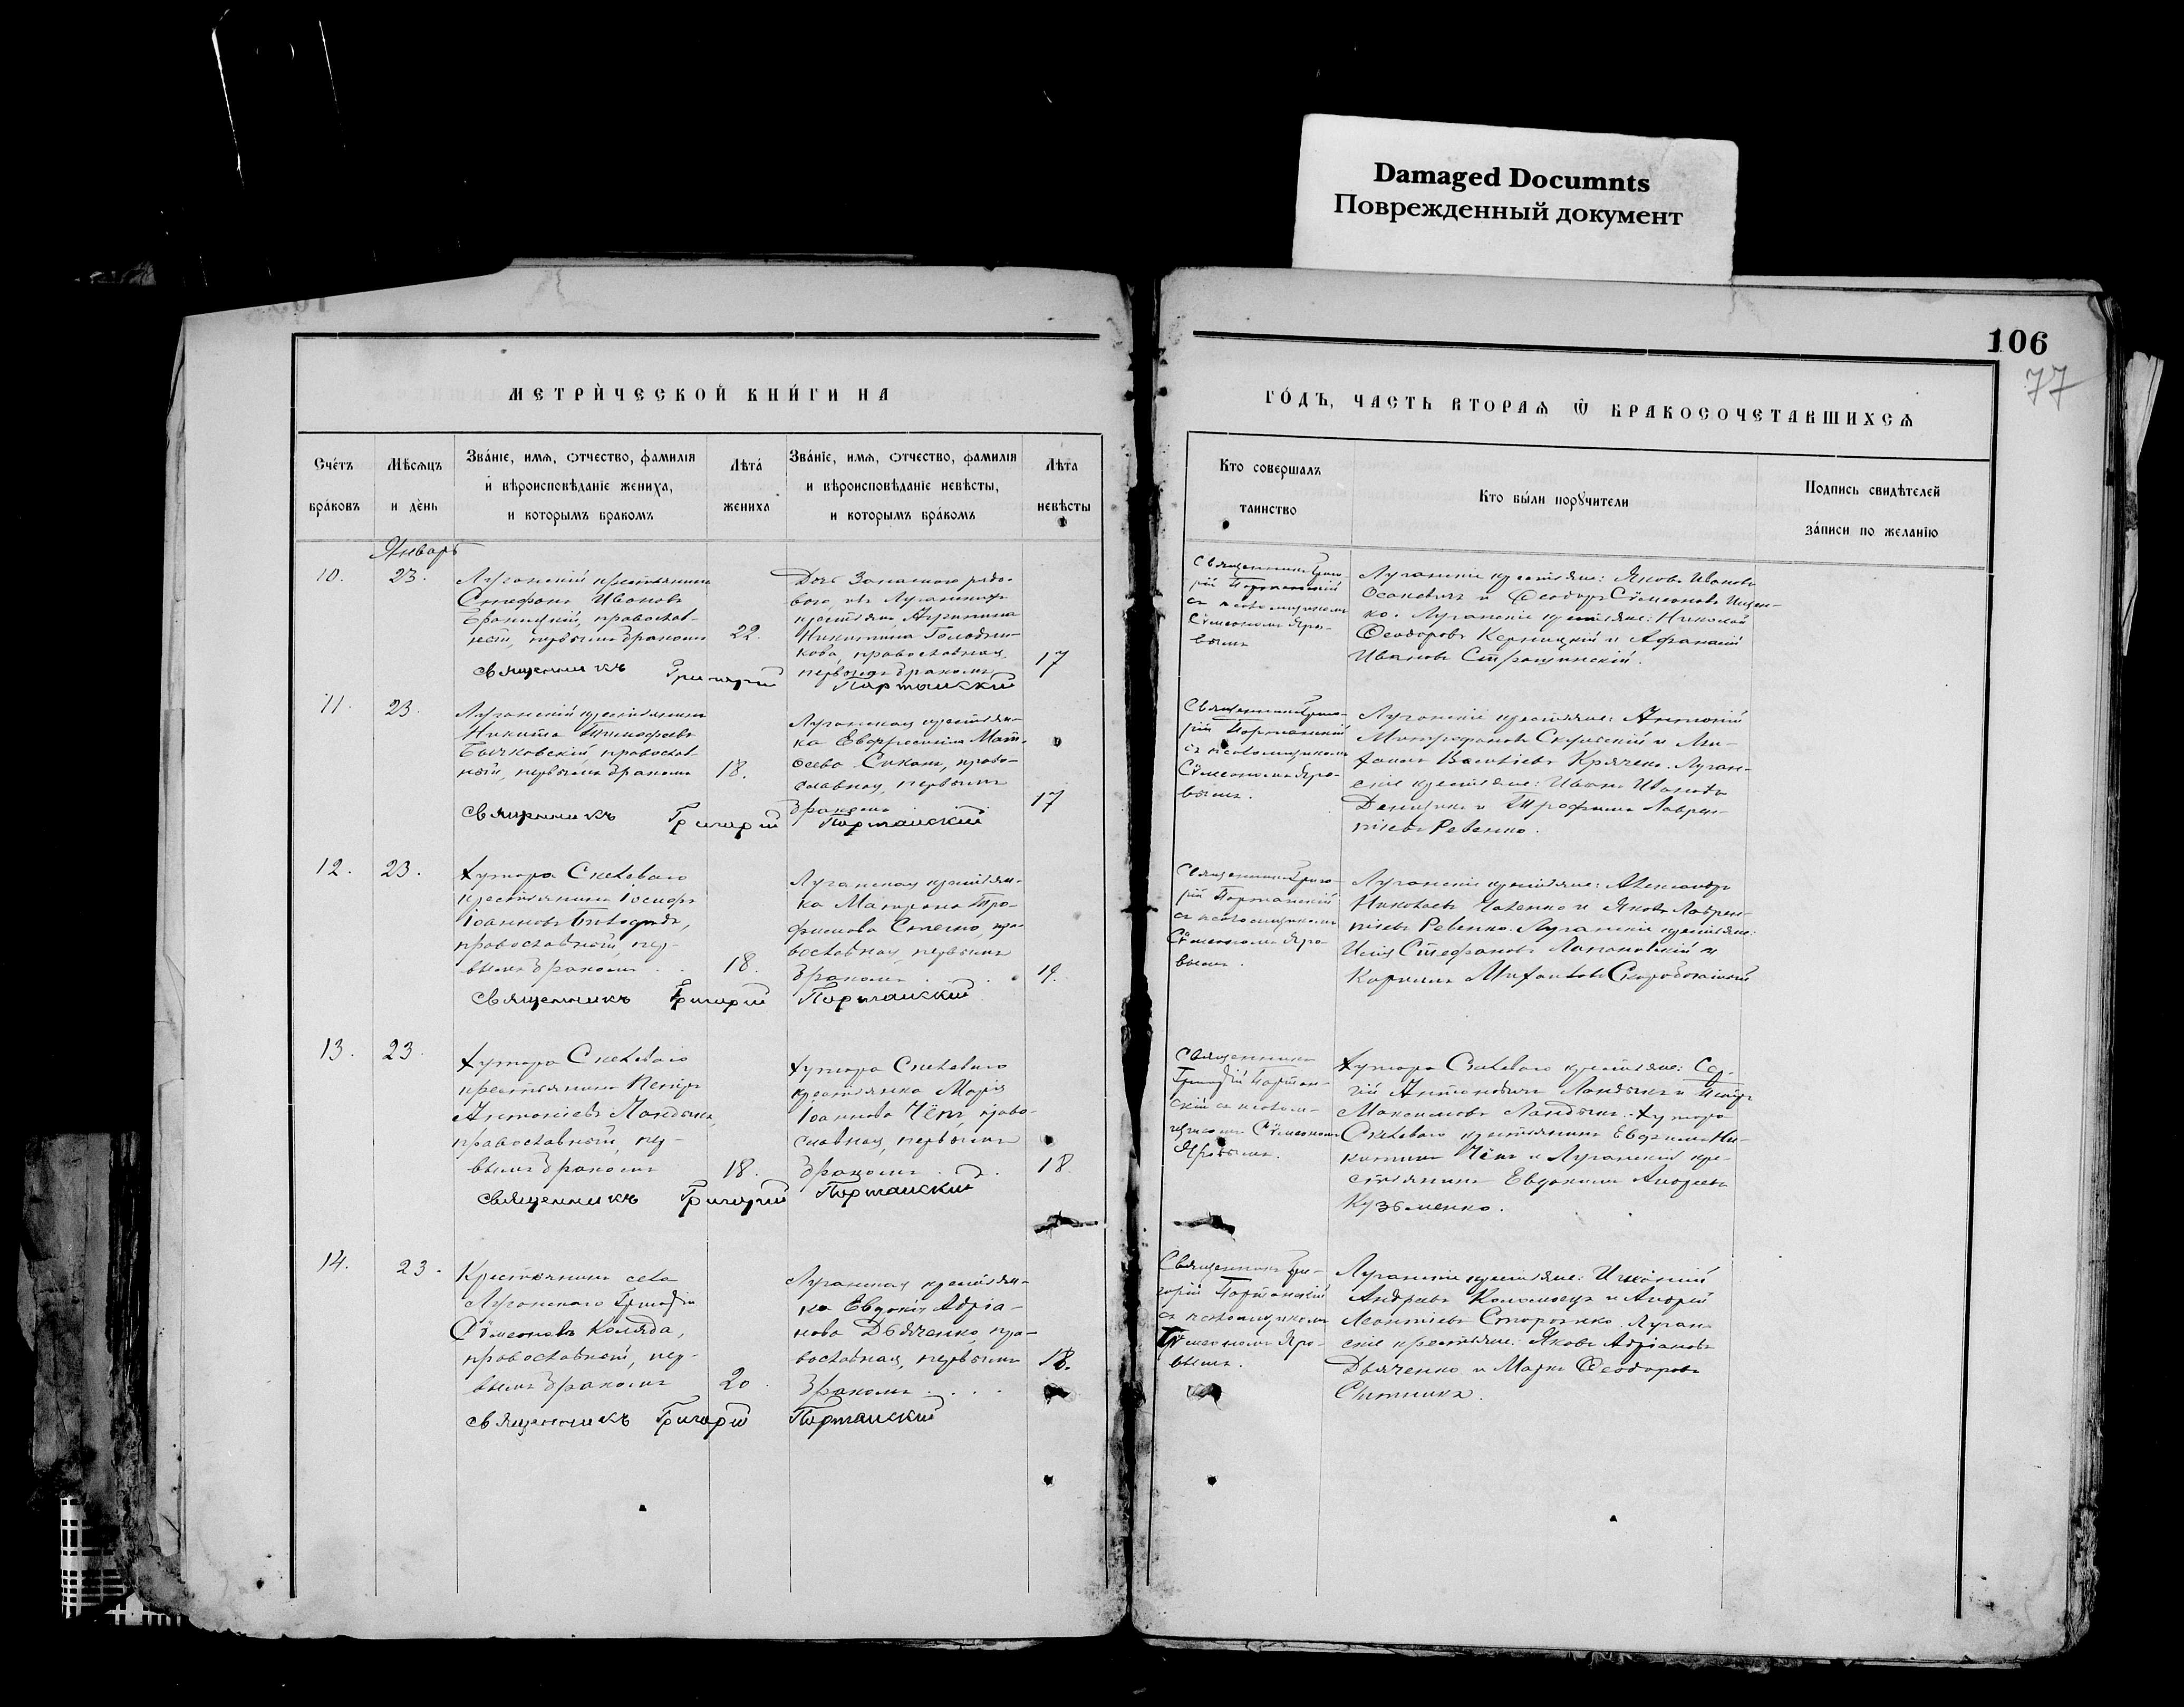 Damaged Documnts
Поврежденный документ
106
77
МЕТРИЧЕСКОЙ КНИГИ НА
ГОДЪ, ЧАСТЬ ВТОРАѦ Ѿ БРАКОСОЧЕТАВШИХСѦ
Счетъ браковъ
Мѣсѧцъ и день
Званіе, имѧ, отчество, фамилія
и вѣроисповѣданіе жениха,
и которымъ бракомъ
Лѣта жениха
Званіе, имѧ, отчество, фамилія
и вѣроисповѣданіе невѣсты,
и которымъ бракомъ
Лѣта невѣсты
Кто совершалъ
таинство
Кто были порꙋчители
Подпись свидѣтелей
записи по желанію
Январь
10.
23.
Луганскій крестьянинъ
Стефанъ Ивановъ
православ-
ный, первымъ бракомъ
22.
Дочь запаснаго рядо-
вого, изъ Луганскихъ
крестьянъ
Никитина
кова, православная,
первымъ бракомъ
17
Священникъ Григорій Портанскій
Священникъ Григо-
рій Портанскій
съ псаломщикомъ
Сѵмеономъ Яро-
вымъ
Луганскіе крестьяне: Яковъ Ивановъ
и Ѳеодоръ Сѵмеоновъ Ищен-
ко. Луганскіе крестьяне: Николай
Ѳеодоровъ Керницкій и Аѳанасій
Ивановъ
11.
23.
Луганскій крестьянинъ
Никита Тимофеевъ
Бычковскій, православ-
ный, первымъ бракомъ
18.
Луганская крестьян-
ка Евфросинія Мат-
ѳеева право-
славная, первымъ
бракомъ
17
Священникъ Григорій Портанскій
Священникъ Григо-
рій Портанскій
съ псаломщикомъ
Сѵмеономъ Яро-
вымъ.
Луганскіе крестьяне: Антоній
Митрофановъ
Васильевъ Крячко. Луган-
скіе крестьяне: Иванъ Ивановъ
и Трофимъ Лаврен-
тіевъ Ревенко.
12.
23.
Хутора Скелеваго
крестьянинъ Іосифъ
Іоанновъ
православный, пер-
вымъ бракомъ
18.
Луганская крестьян-
ка Матрона Тро-
фимова пра-
вославная, первымъ
бракомъ
19.
Священникъ Григорій Портанскій
Священникъ Григо-
рій Портанскій
съ псаломщикомъ
Сѵмеономъ Яро-
вымъ.
Луганскіе крестьяне: Александръ
Николаевъ Чаленко и Яковъ Лаврен-
тіевъ Ревенко. Луганскіе крестьяне:
Илія Стефановъ и
Корнилъ Михаиловъ Скоробогатый
13.
23.
Хутора Скелеваго
крестьянинъ Петръ
Антоніевъ Ландыкъ,
православный, пер-
вымъ бракомъ
18.
Хутора Скелеваго
крестьянка Марія
Іоаннова право-
славная, первымъ
бракомъ
18
Священникъ Григорій Портанскій
Священникъ
Григорій Портан-
скій съ псалом-
щикомъ Сѵмеономъ
Яровымъ.
Хутора Скелеваго крестьяне: Сер-
гій Антоновичъ Ландыкъ и Петръ
Максимовъ Ландыкъ. Хутора
Скелеваго крестьянинъ Евфимъ Ни-
китинъ и Луганскій кре-
стьянинъ Евдокимъ Андреевъ
Кузьменко.
14.
23.
Крестьянинъ села
Луганскаго Григорій
Сѵмеоновъ Коляда,
православный, пер-
вымъ бракомъ
20
Луганская крестьян-
ка Евдокія Адріа-
нова Дьяченко, пра-
вославная, первымъ
бракомъ
18.
Священникъ Григорій Портанскій
Священникъ Гри-
горій Портанскій
съ псаломщикомъ
Сѵмеономъ Яро-
вымъ.
Луганскіе крестьяне:
Андреевъ Коломоецъ и Андрей
Леонтіевъ Стороженко. Луган-
скіе крестьяне: Яковъ Адріановъ
Дьяченко и Маркъ Ѳеодоровъ
Ситникъ.